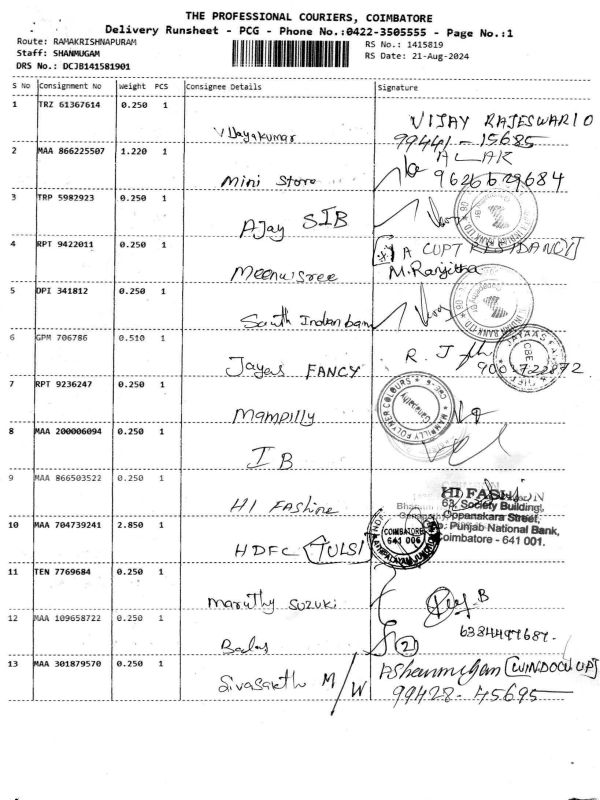 THE PROFESSIONAL COURIERS, COIMBATORE
Delivery Runsheet - PCG - Phone No.:0422-3505555 - Page No.:1
Route: RAMAKRISHNAPURAM
Staff: SHANMUGAM
DRS No.: DCJB141581901
RS No.: 1415819
RS Date: 21-Aug-2024
S No Consignment No Weight PCS Consignee Details Signature
1 TRZ 61367614 0.250 1
Vijayakumar
VIJAY RAJESWARI O
99441-15685
2 MAA 866225507 1.220 1
Mini Store
9626629684
3 TRP 5982923 0.250 1
AJay SIB
4 RPT 9422011 0.250 1
Meenwisree
M.Ranjitha
5 DPI 341812 0.250 1
South Indian bank
6 GPM 706786 0.510 1
Jayas FANCY
7 RPT 9236247 0.250 1
Mampilly
MAMPILLY POLYMER COLOURS
8 MAA 200006094 0.250 1
IB
9 MAA 866503522 0.250 1
HI FAShine
HI FASHION
63, Society Building,
Oppanakara Street,
Punjab National Bank,
Coimbatore - 641 001.
10 MAA 704739241 2.850 1
HDFC (TULSI)
COIMBATORE
641 006
11 TEN 7769684 0.250 1
Maruthy SUZUKI
12 MAA 109658722 0.250 1
2
13 MAA 301879570 0.250 1
Sivasakthi M/W
P.Shanmugam
99428-45695